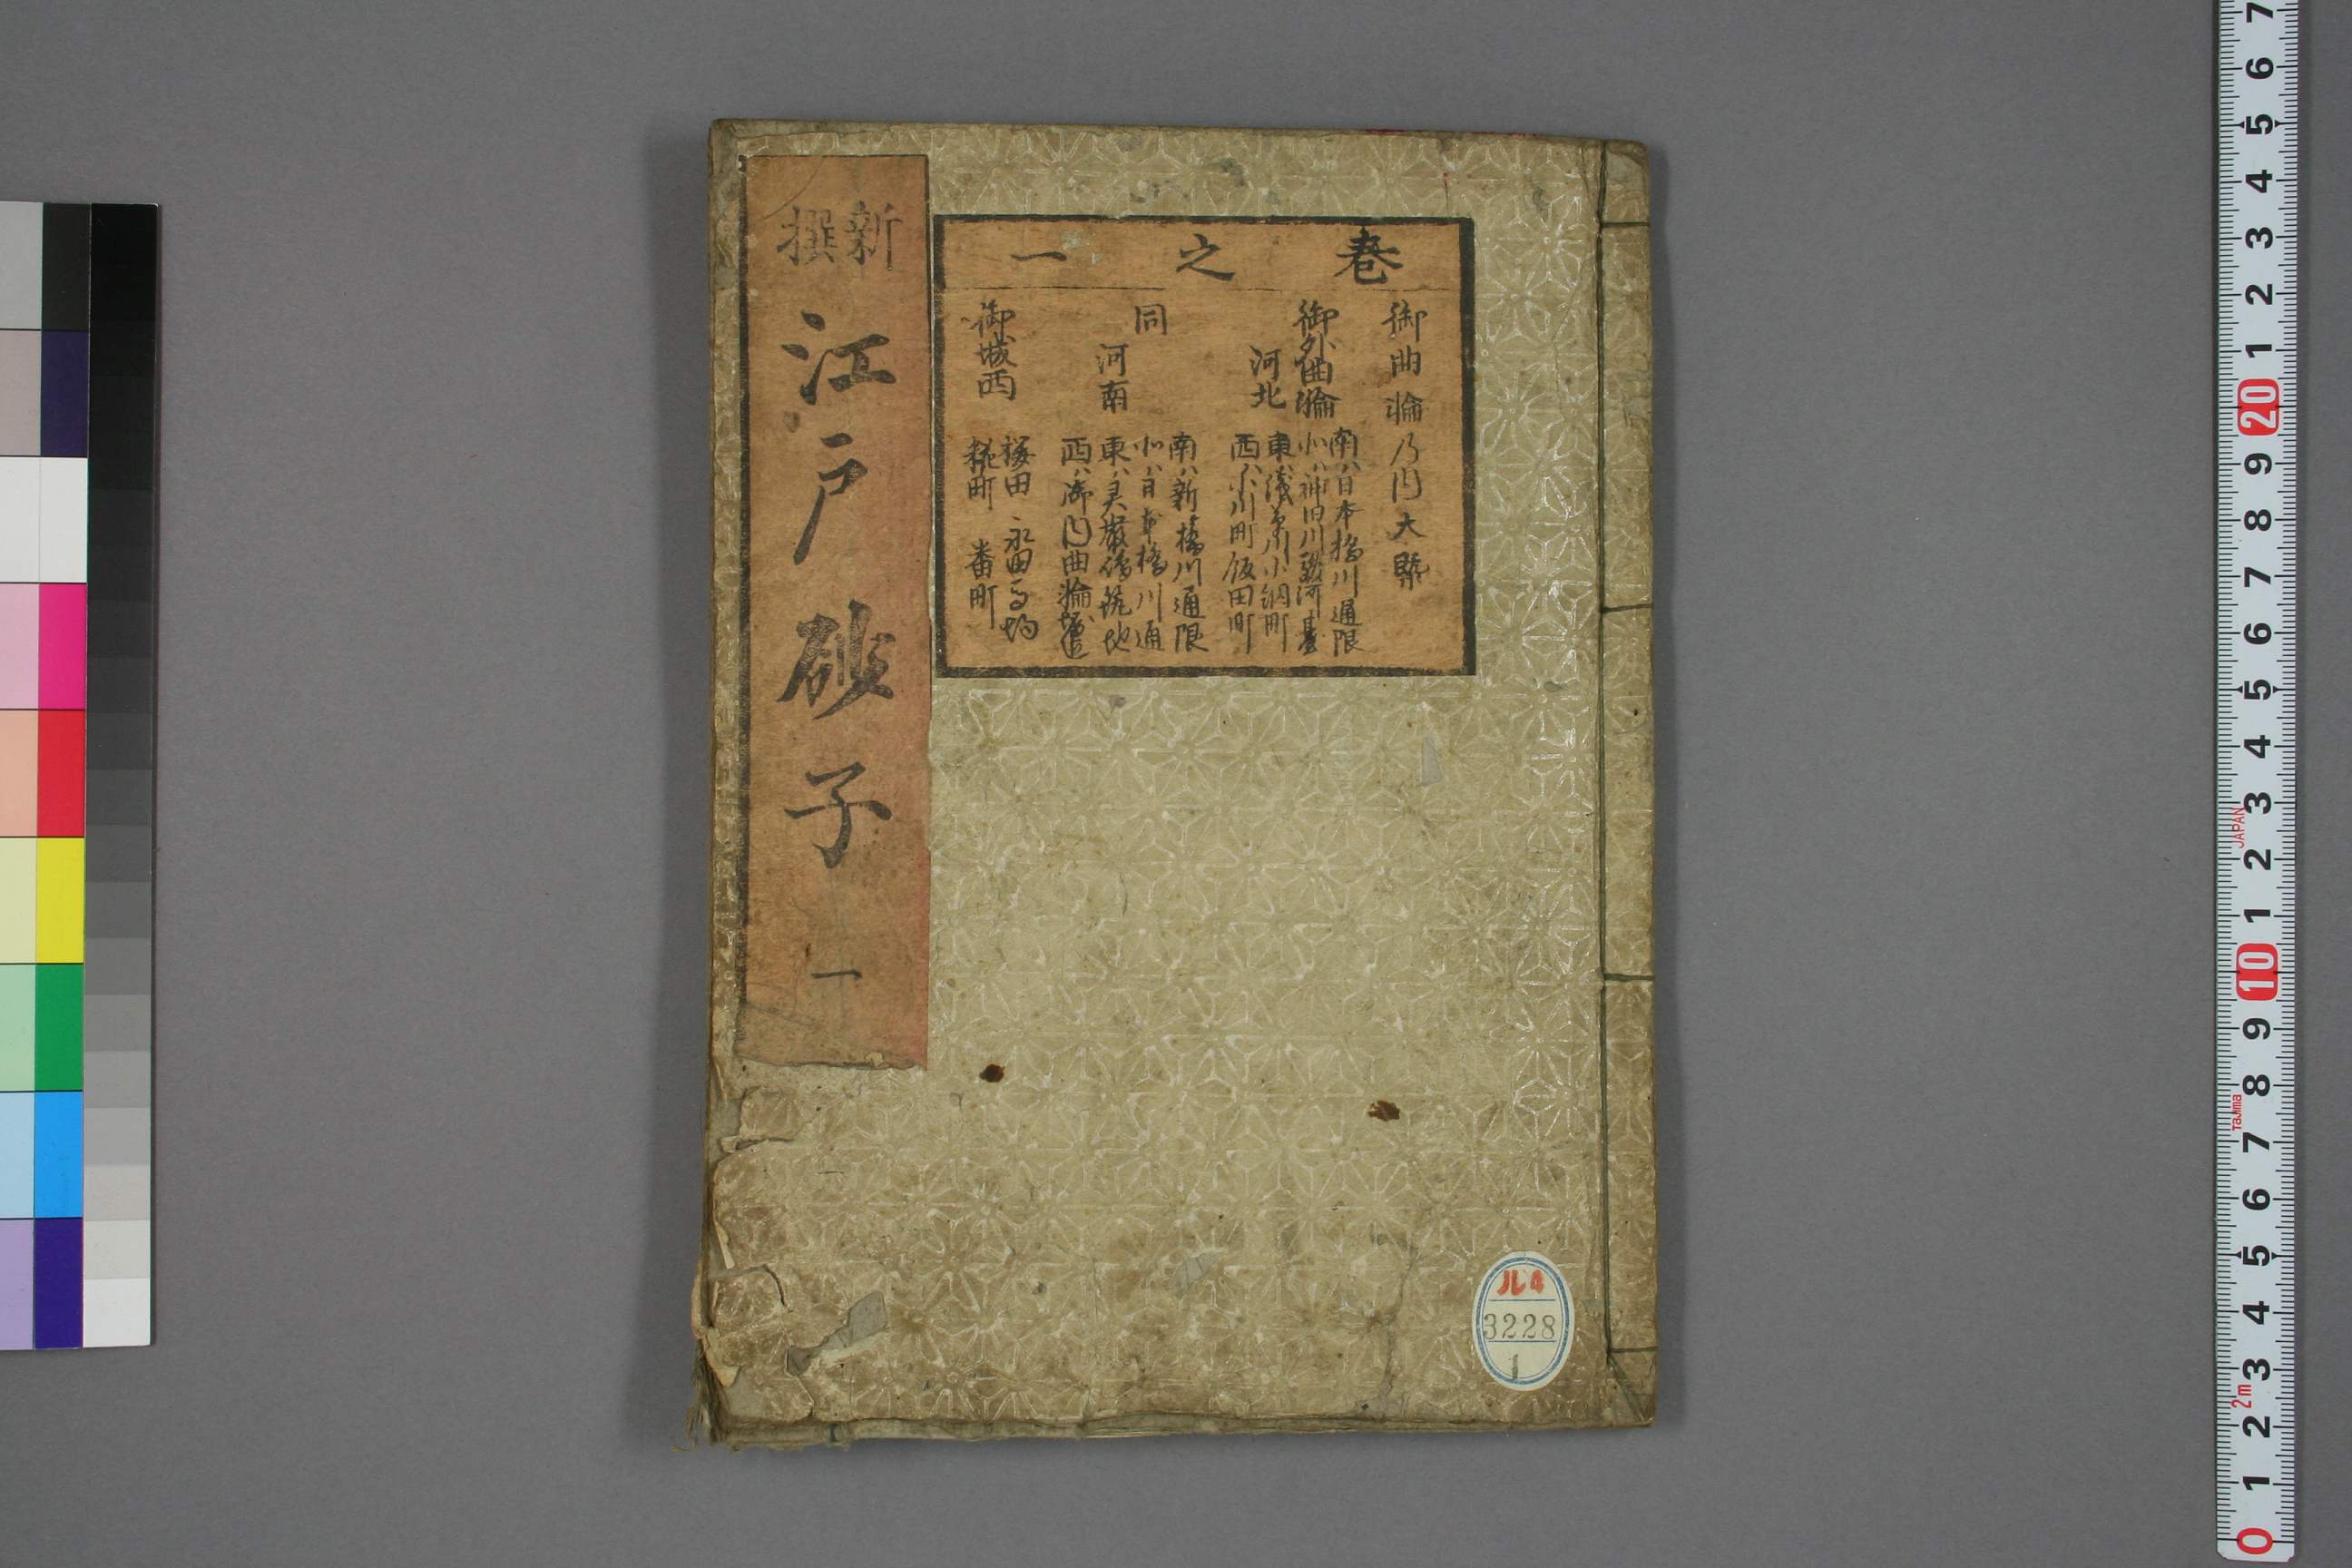 新撰
江戸砂子
一
巻之一
御曲輪乃内大槩
御外曲輪
河北
南ハ日本橋川通限
北ハ神田川駿河臺
東ハ浅草川小網町
西ハ小川町飯田町
同
河南
南ハ新橋川通限
北ハ日本橋川通
東ハ灵巌嶋築地
西ハ御内曲輪堀迄
御城西
桜田 永田馬場
糀町 番町
ル4
3228
1
7
6
5
4
3
2
1
20
9
8
7
6
5
4
3
JAPAN
2
1
10
9
8
Tajima
7
6
5
4
3
2m
2
1
0